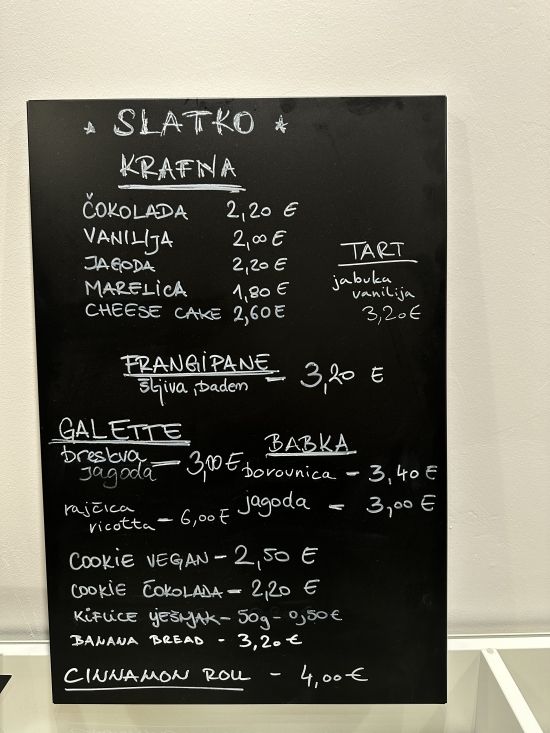 ★ SLATKO ★
KRAFNA
ČOKOLADA 2,20 €
VANILIJA 2,00 €
JAGODA 2,20 €
MARELICA 1,80 €
CHEESE CAKE 2,60 €
TART
jabuka
vanilija
3,20 €
FRANGIPANE
šljiva, badem – 3,20 €
GALETTE
breskva
jagoda – 3,00 €
rajčica
ricotta – 6,00 €
BABKA
borovnica – 3,40 €
jagoda – 3,00 €
COOKIE VEGAN – 2,50 €
COOKIE ČOKOLADA – 2,20 €
KIFLICE LJEŠNJAK – 50g – 0,50 €
BANANA BREAD - 3,20 €
CINNAMON ROLL - 4,00 €